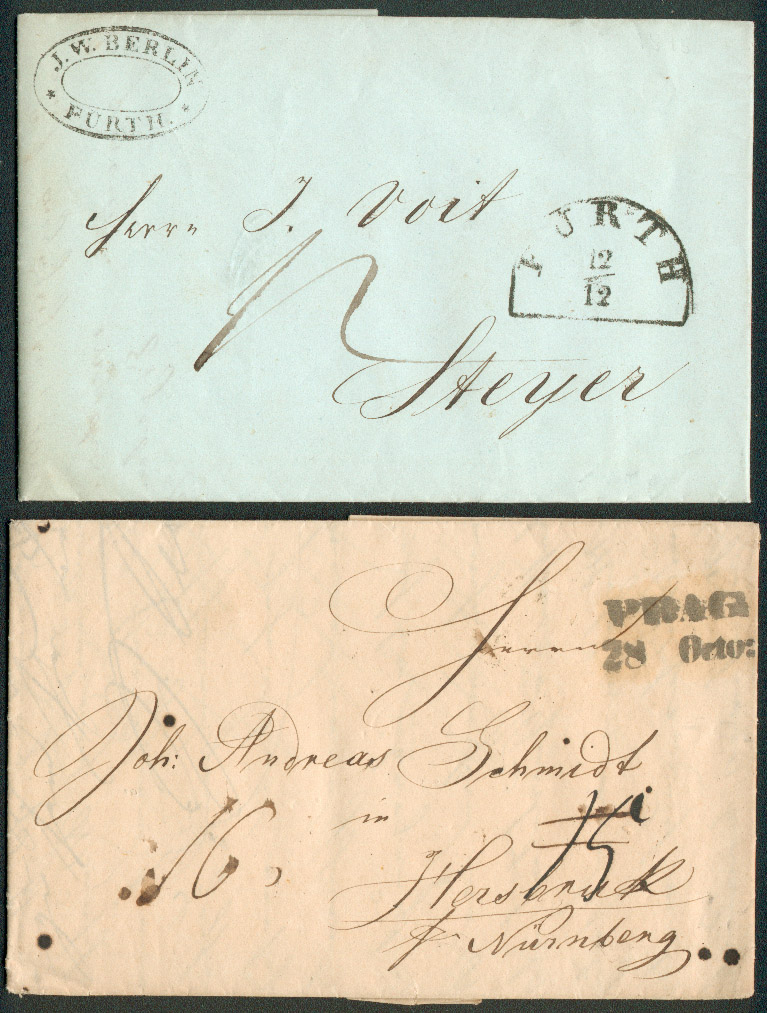 J. W. BERLIN
* FÜRTH. *
Herrn J. Voit
FÜRTH
12
12
Steyer
Herrn
PRAG
28 Octo:
Joh: Andreas Schmidt
in
16
Hersbruck
Nürnberg